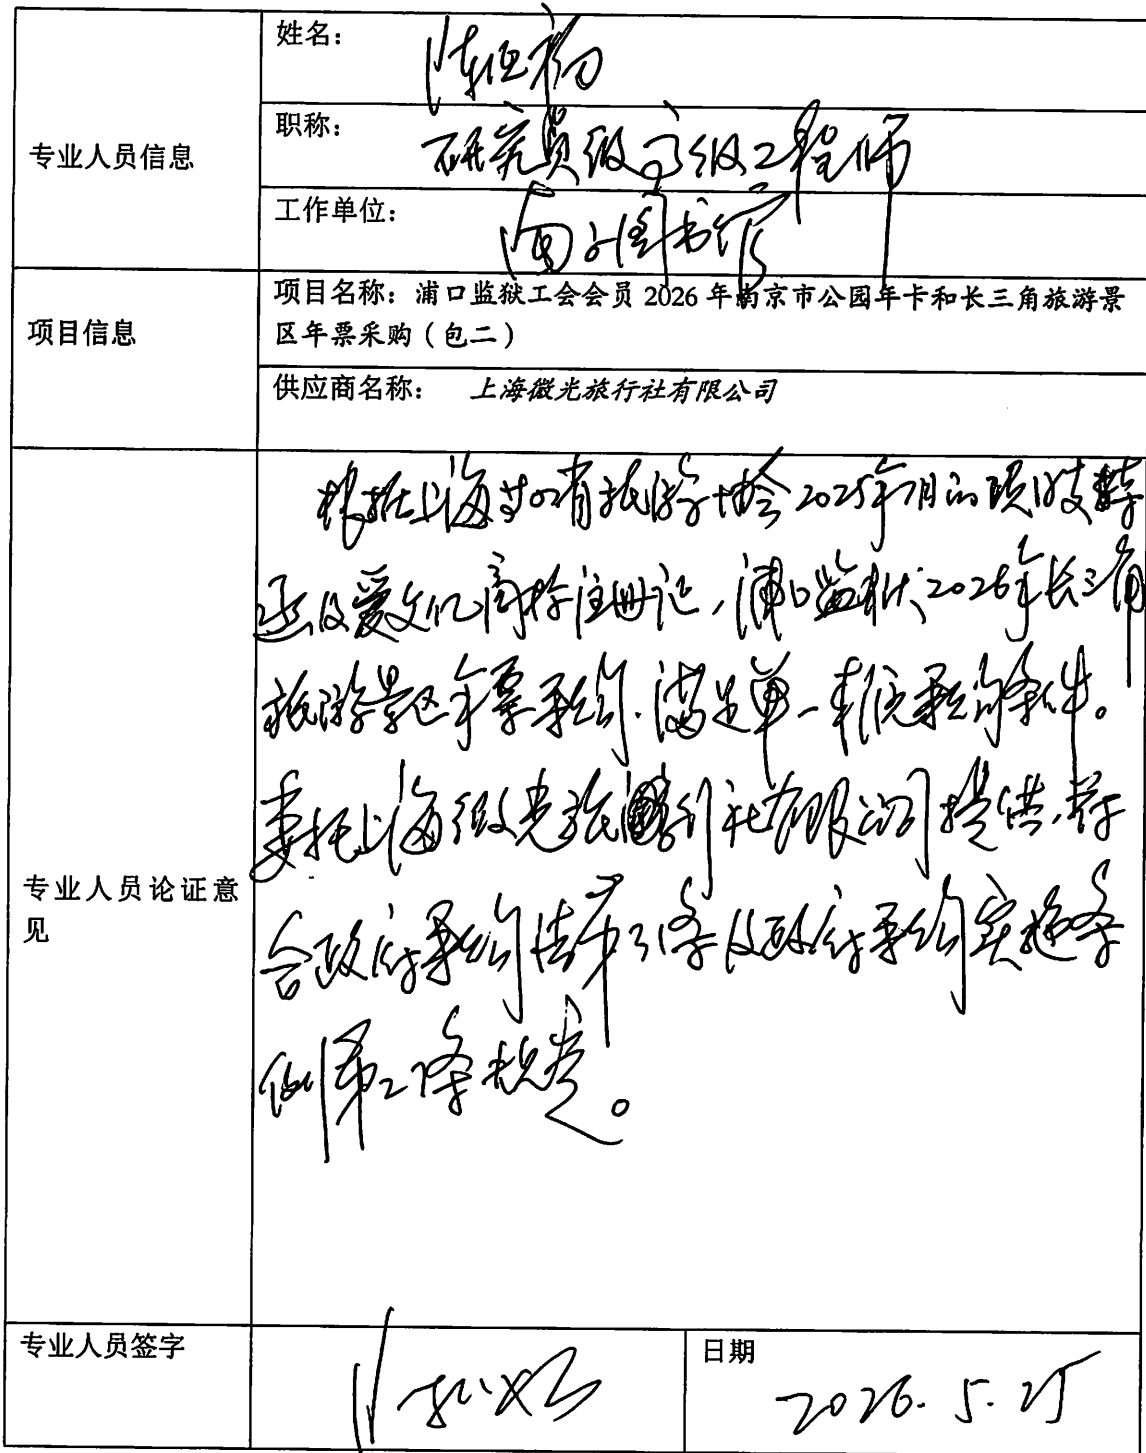 专业人员信息
姓名：
陈
职称：
研究员级高级工程师
工作单位：
南京图书馆
项目信息
项目名称：浦口监狱工会会员 2026 年南京市公园年卡和长三角旅游景
区年票采购（包二）
供应商名称： 上海微光旅行社有限公司
专业人员论证意
见
根据上海 旅游协会2025年 月的
函及爱文化商标注册证，浦口监狱2026年长三角
旅游景区年票采购，满足单一来源采购条件。
委托上海微光旅行社有限公司提供，符
合政府采购法第31条及政府采购实施条
例第27条规定。
专业人员签字
陈
日期
2026.5.25